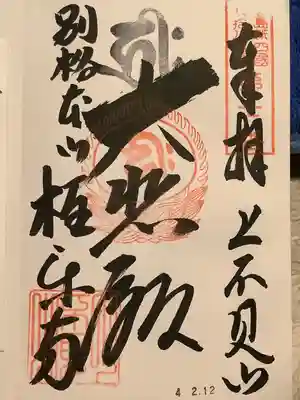 奉拝 上不見山
大悲殿
別格本山 極楽寺
4 2.12